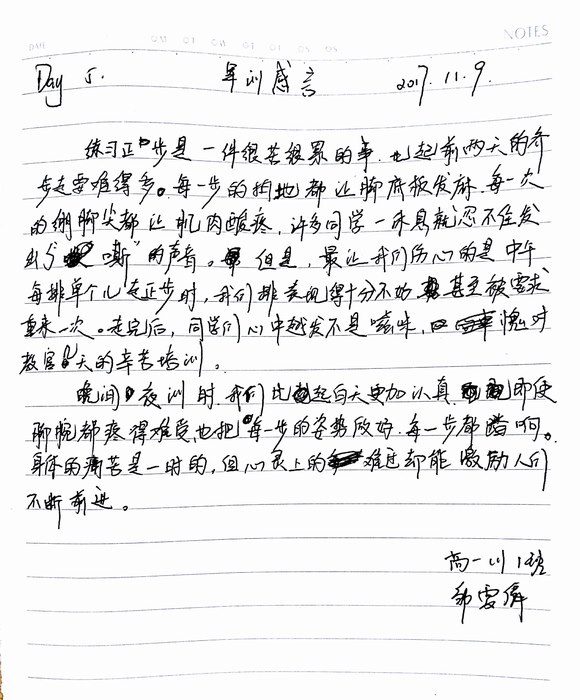 NOTES
Day 5. 军训感言 2017.11.9.
练习正步是一件很苦很累的事,比起前两天的齐
步走要难得多。每一步的拍地都让脚底板发麻,每一次
的绷脚尖都让肌肉酸疼,许多同学一休息就忍不住发
出"嘶"的声音。但是,最让我们伤心的是中午
每排单个儿走正步时,我们排表现得十分不好,甚至被要求
重来一次。走完后,同学们心中越发不是嗞味,愧对
教官5天的辛苦培训。
晚间夜训时,我们比起白天更加认真,即使
脚腕都疼得难受,也把每一步的姿势做好,每一步都踏响。
身体的痛苦是一时的,但心灵上的难过却能激励人们
不断前进。
高一(1)班